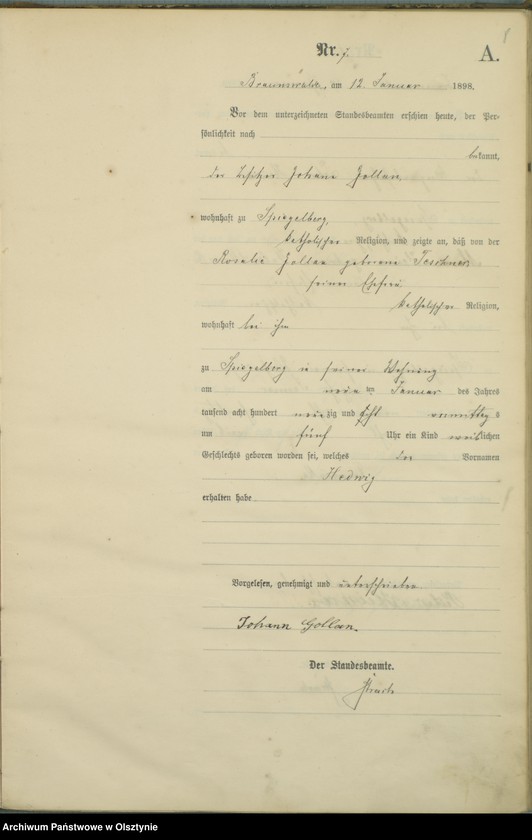 8
Nr. 7.
A.
Braunswalde, am 12. Januar 1898.
Vor dem unterzeichneten Standesbeamten erschien heute, der Per-
sönlichkeit nach
bekannt,
der Besitzer Johann Gollan,
wohnhaft zu Spiegelberg,
katholischer Religion, und zeigte an, daß von der
Rosalie Gollan geborene Teschner,
seiner Ehefrau
katholischer Religion,
wohnhaft bei ihm
zu Spiegelberg in seiner Wohnung
am neun ten Januar des Jahres
tausend acht hundert neunzig und acht vormittags
um fünf Uhr ein Kind weiblichen
Geschlechts geboren worden sei, welches den Vornamen
Hedwig
erhalten habe
Vorgelesen, genehmigt und unterschrieben
Johann Gollan.
Der Standesbeamte.
Archiwum Państwowe w Olsztynie